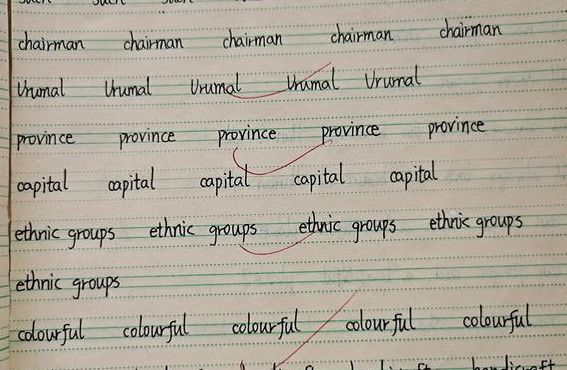 chairman chairman chairman chairman chairman
Urumal Urumal Urumal Urumal Urumal
province province province province province
capital capital capital capital capital
ethnic groups ethnic groups ethnic groups ethnic groups
ethnic groups
colourful colourful colourful colourful colourful
handicraft